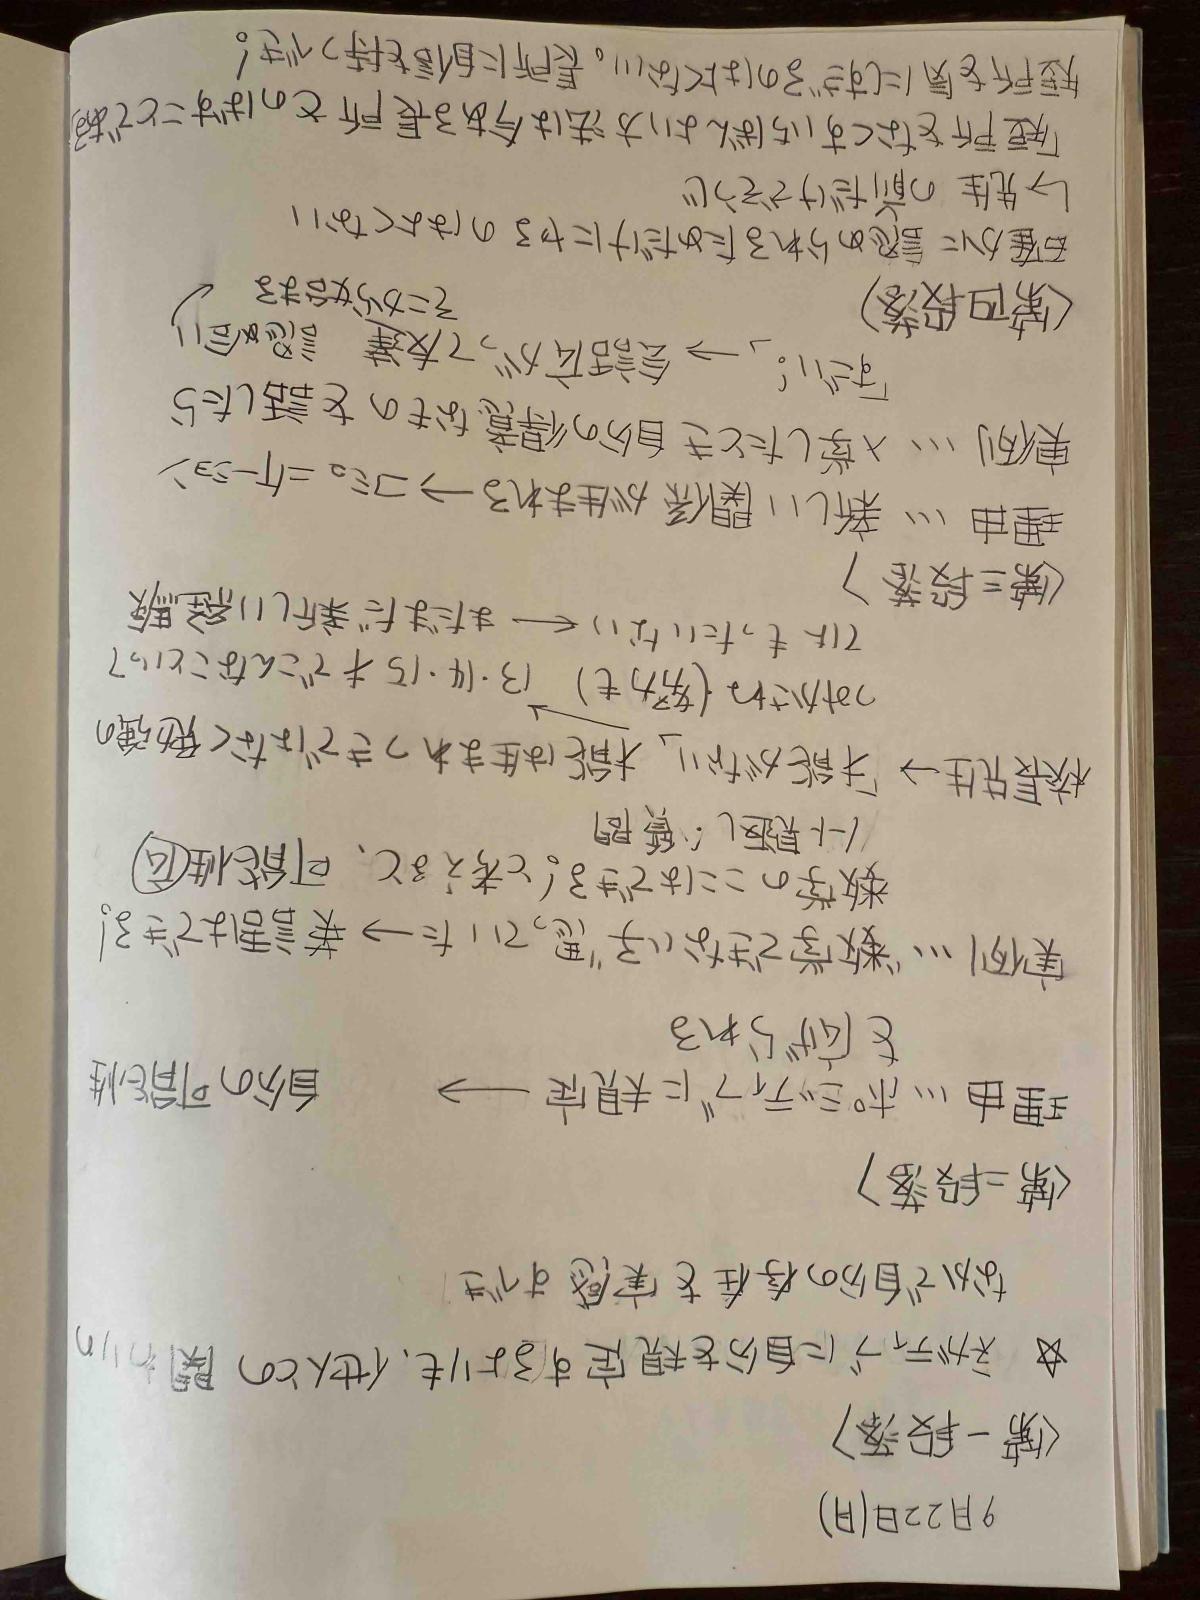 9月22日(月)
〈第一段落〉
☆ ネガティブに自分を規定するよりも、他人との関わりの
なかで自分の存在を実感すべき!
〈第二段落〉
理由…ポジティブに規定 → 自分の可能性
を広げられる
実例…"数学できない子"思っていた → 英語はできる!
数学のここはできる!と考えると、可能性広
ノート見返し、質問
校長先生→「才能がない」 才能は生まれつきではなく勉強の
つみかさね(努力も) 13・14・15才でこんなこといって
てはもったいない ← まだまだ新しい経験
〈第三段落〉
理由…新しい関係が生まれる→コミュニケーション
実例…入学したとき自分の得意なものを話したら
「すごい!」→ 会話広がって友達 認め合い
そこから始まる
〈第四段落〉
確かに認められるためだけにやるのはよくない
↳先生の前だけでそうじ
「短所をなくすいちばんよい方法は今ある長所をのばすことである」
短所を気にしすぎるのはよくない。長所に自信を持つべき!